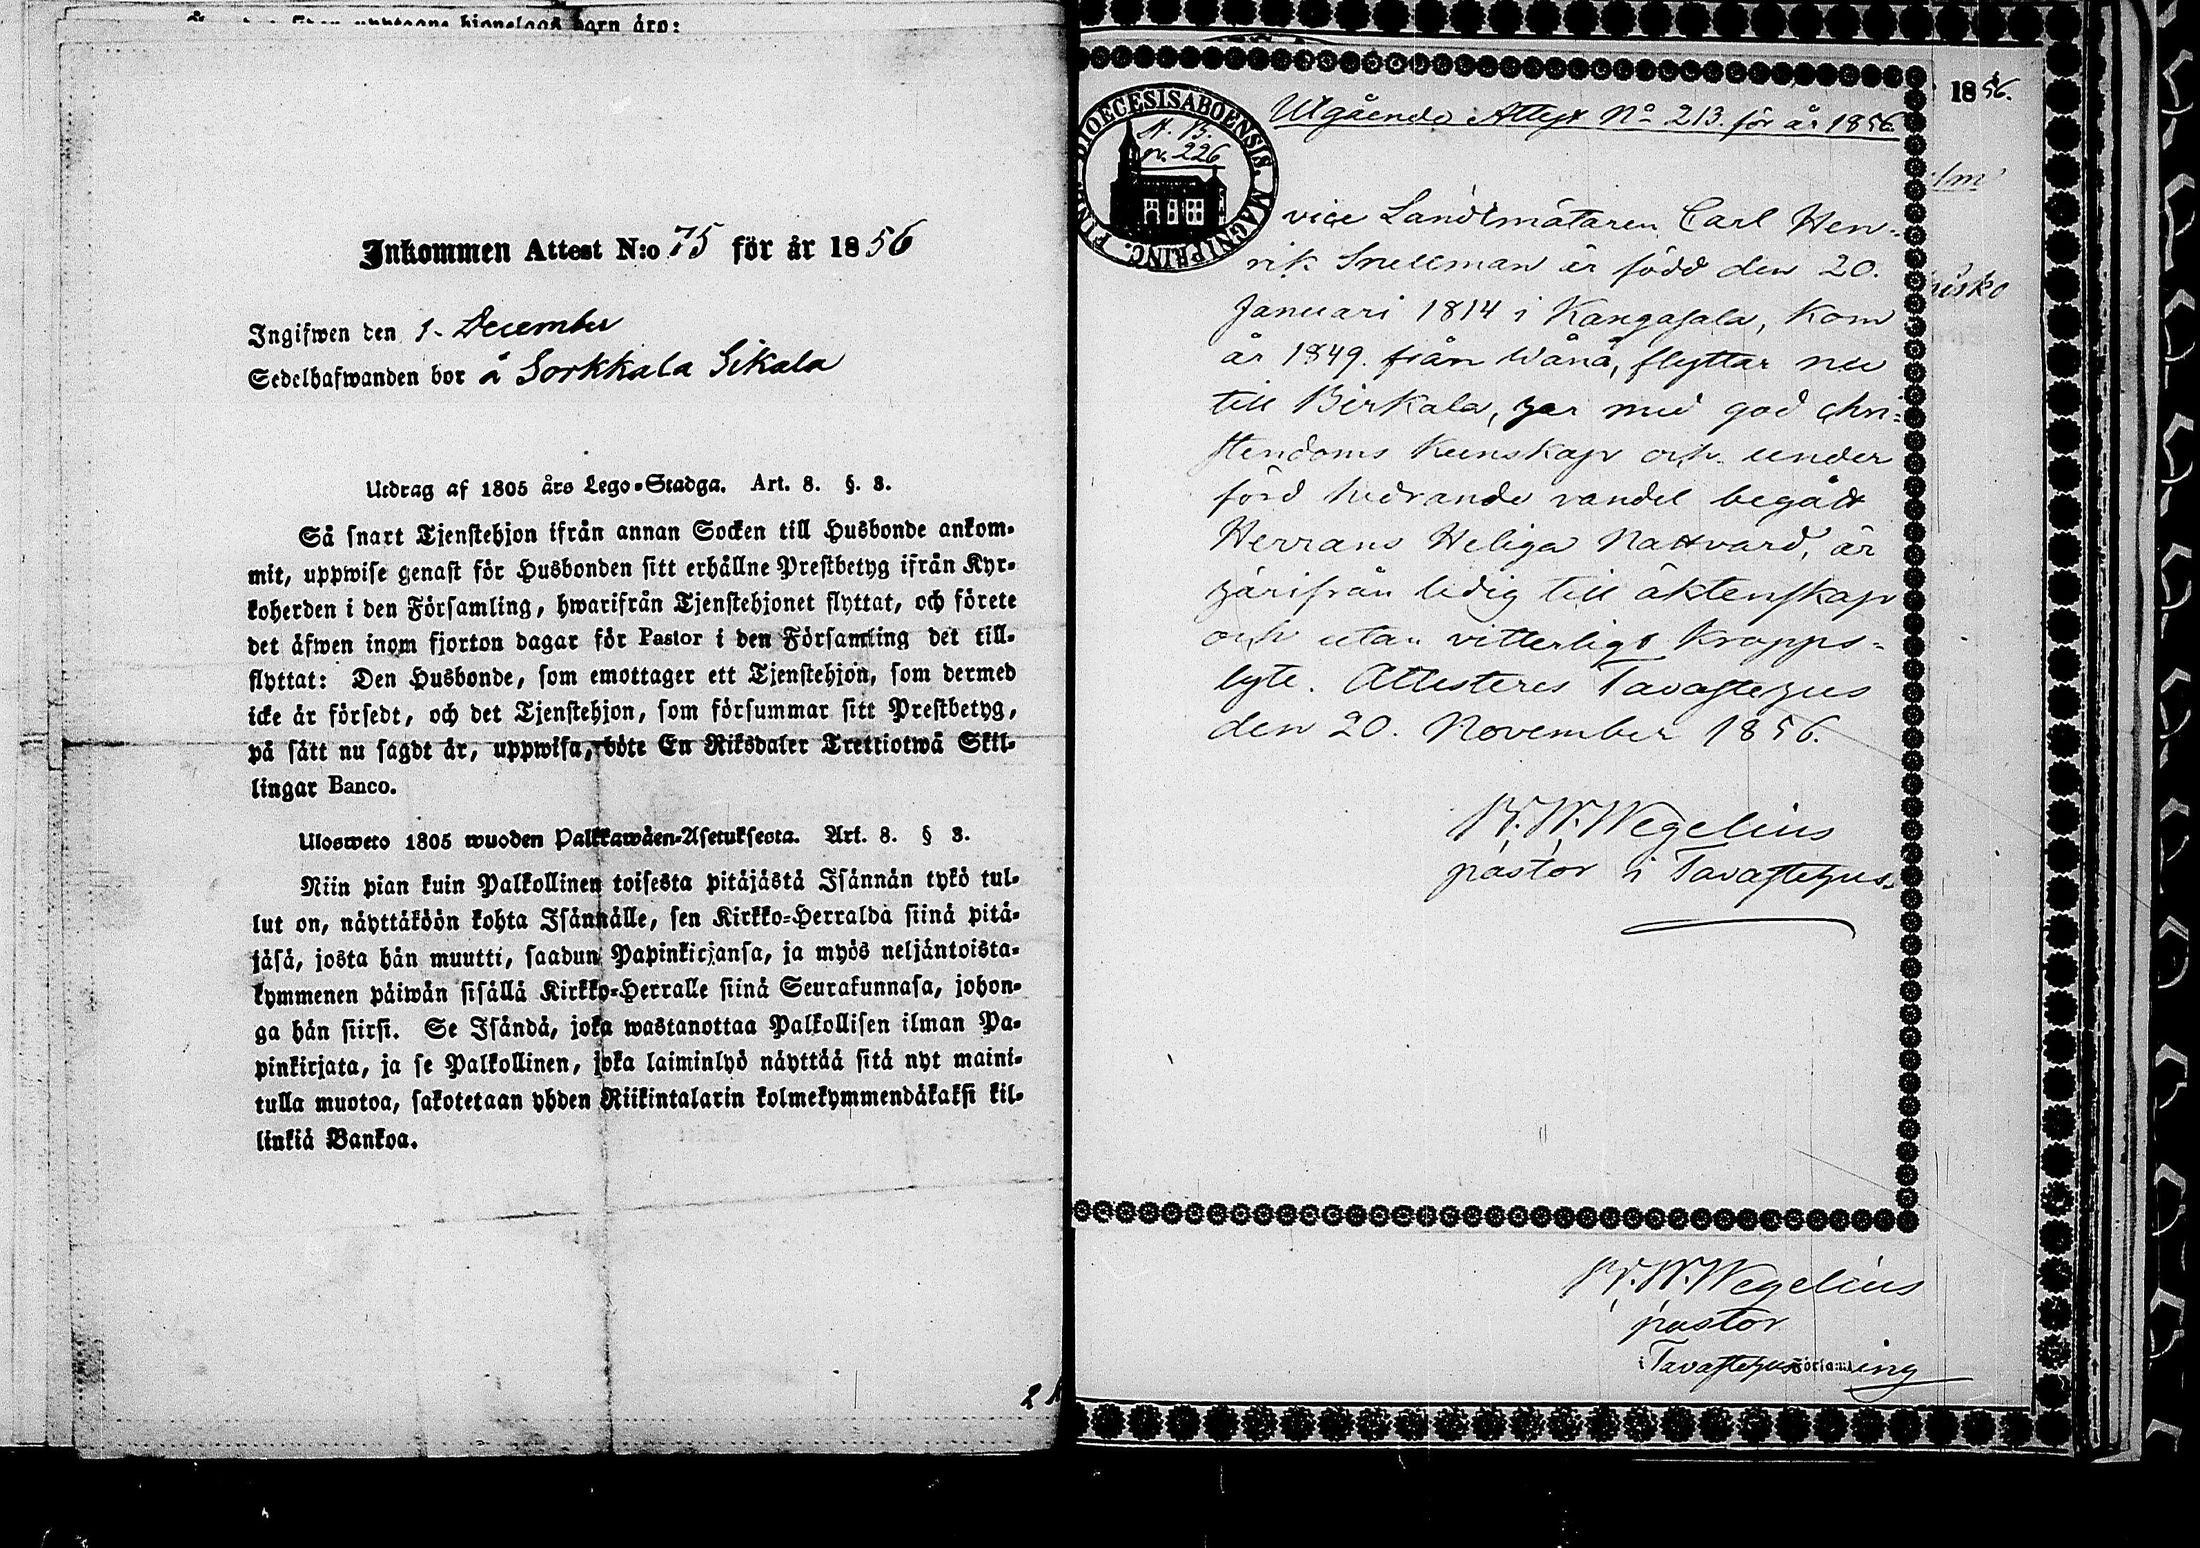 barn äro:
Inkommen Attest N:o 75 för år 1856
Ingifwen den 1. December
Sedelhafwanden bor å Sorkkala Sikala
Utdrag af 1805 års Lego-Stadga. Art. 8. §. 3.
Så snart Tjenstehjon ifrån annan Socken till Husbonde ankom-
mit, uppwise genast för Husbonden sitt erhållne Prestbetyg ifrån Kyr-
koherden i den Församling, hwarifrån Tjenstehjonet flyttat, och förete
det äfwen inom fjorton dagar för Pastor i den Församling det till-
flyttat: Den Husbonde, som emottager ett Tjenstehjon, som dermed
icke är försedt, och det Tjenstehjon, som försummar sitt Prestbetyg,
på sätt nu sagdt är, uppwisa, böte En Riksdaler Trettiotwå Skil-
lingar Banco.
Ulosweto 1805 wuoden Palkkawäen-Asetuksesta. Art. 8. § 3.
Niin pian kuin Palkollinen toisesta pitäjästä Isännän tykö tul-
lut on, näyttäköön kohta Isännälle, sen Kirkko-Herralda siinä pitä-
jäsä, josta hän muutti, saadun Papinkirjansa, ja myös neljäntoista-
kymmenen päiwän sisällä Kirkko-Herralle siinä Seurakunnasa, johon-
ga hän siirsi. Se Isändä, joka wastanottaa Palkollisen ilman Pa-
pinkirjata, ja se Palkollinen, joka laiminlyö näyttää sitä nyt maini-
tulla muotoa, sakotetaan yhden Riikintalarin kolmekymmendäkaksi kil-
linkiä Bankoa.
2
DIOECESIS ABOENSIS. MAGNI PRINC. FINL.
H. B.
p. 226
Utgående Attest No 213. för år 1856.
vice Landtmätaren Carl Hen-
rik Snellman är född den 20.
Januari 1814 i Kangasala, kom
år 1849. från Wånå, flyttar nu
till Birkala, har med god chri-
stendoms kunskap och under
förd hedrande vandel begått
Herrans Heliga Nattvard, är
härifrån ledig till äktenskap
och utan vitterligt kropps-
lyte. Attesteres Tavastehus
den 20. November 1856.
W. W. Wegelius
pastor i Tavastehus.
1856.
W. W. Wegelius
pastor
i Tavastehus Församling